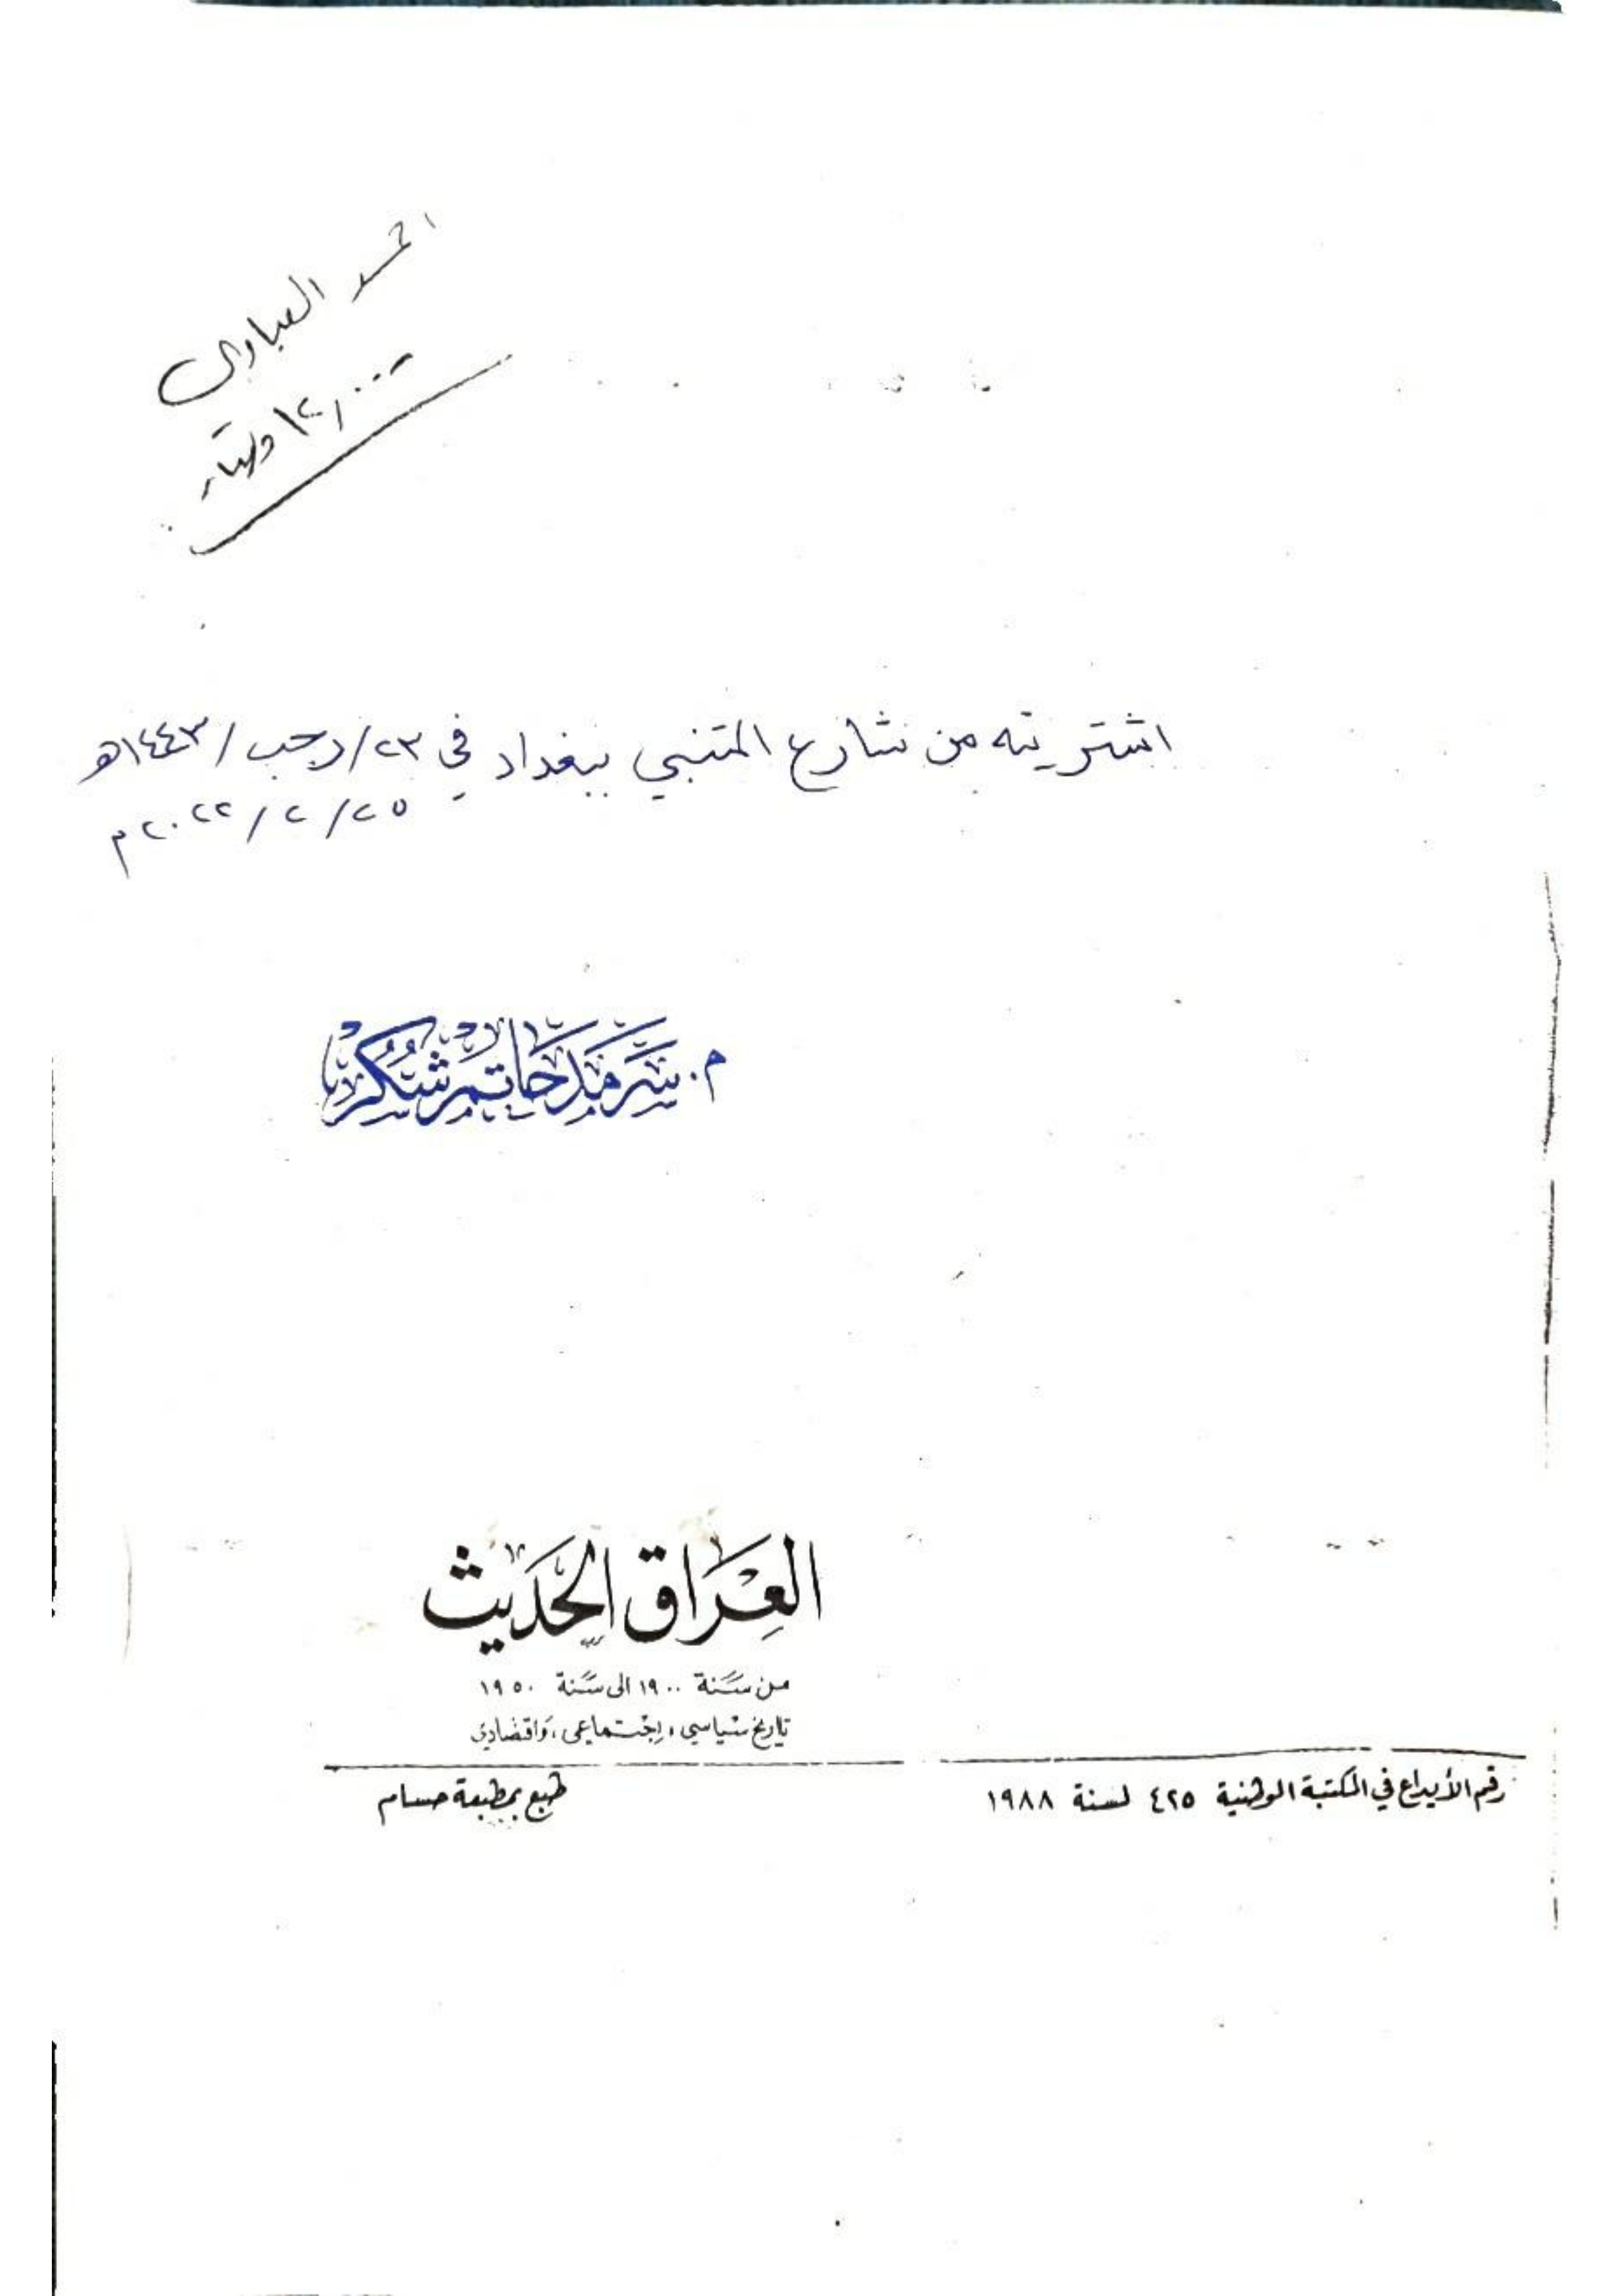 احمد العبادي
١٢,٠٠٠ دينار
اشتريته من شارع المتنبي ببغداد في ٢٣/رجب/١٤٤٣هـ
٢٥/٢/٢٠٢٢م
م. سَرمَد حَاتم شُكر
العِرَاق الحَدِيث
من سَنة ١٩٠٠ الى سَنة ١٩٥٠
تاريخ سياسي، إجتماعي، وَاقتصادي
رقم الأيداع في المكتبة الوطنية ٤٢٥ لسنة ١٩٨٨
طبع بمطبعة حسام